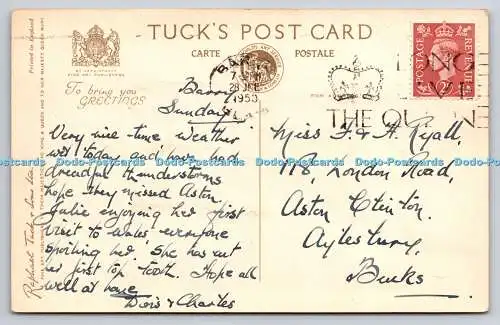 TUCK'S POST CARD
CARTE POSTALE
Printed in England
BY APPOINTMENT
To bring you
GREETINGS
Raphael Tuck & Sons Ltd
POSTAGE
REVENUE
2D
1953
LONG
LIVE
THE QUEEN
Sunday
Very nice time weather
wet today and have had
dreadful thunderstorms
hope they missed Aston.
Julie enjoying her first
visit to Wales everyone
spoiling her. She has cut
her first top tooth. Hope all
well at home
Doris & Charles
Miss F & A Ryall
118, London Road
Aston Clinton
Aylesbury
Bucks
Dodo-Postcards Dodo-Postcards Dodo-Postcards Dodo-Postcards